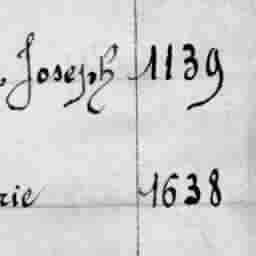 Joseph 1139
rie 1638